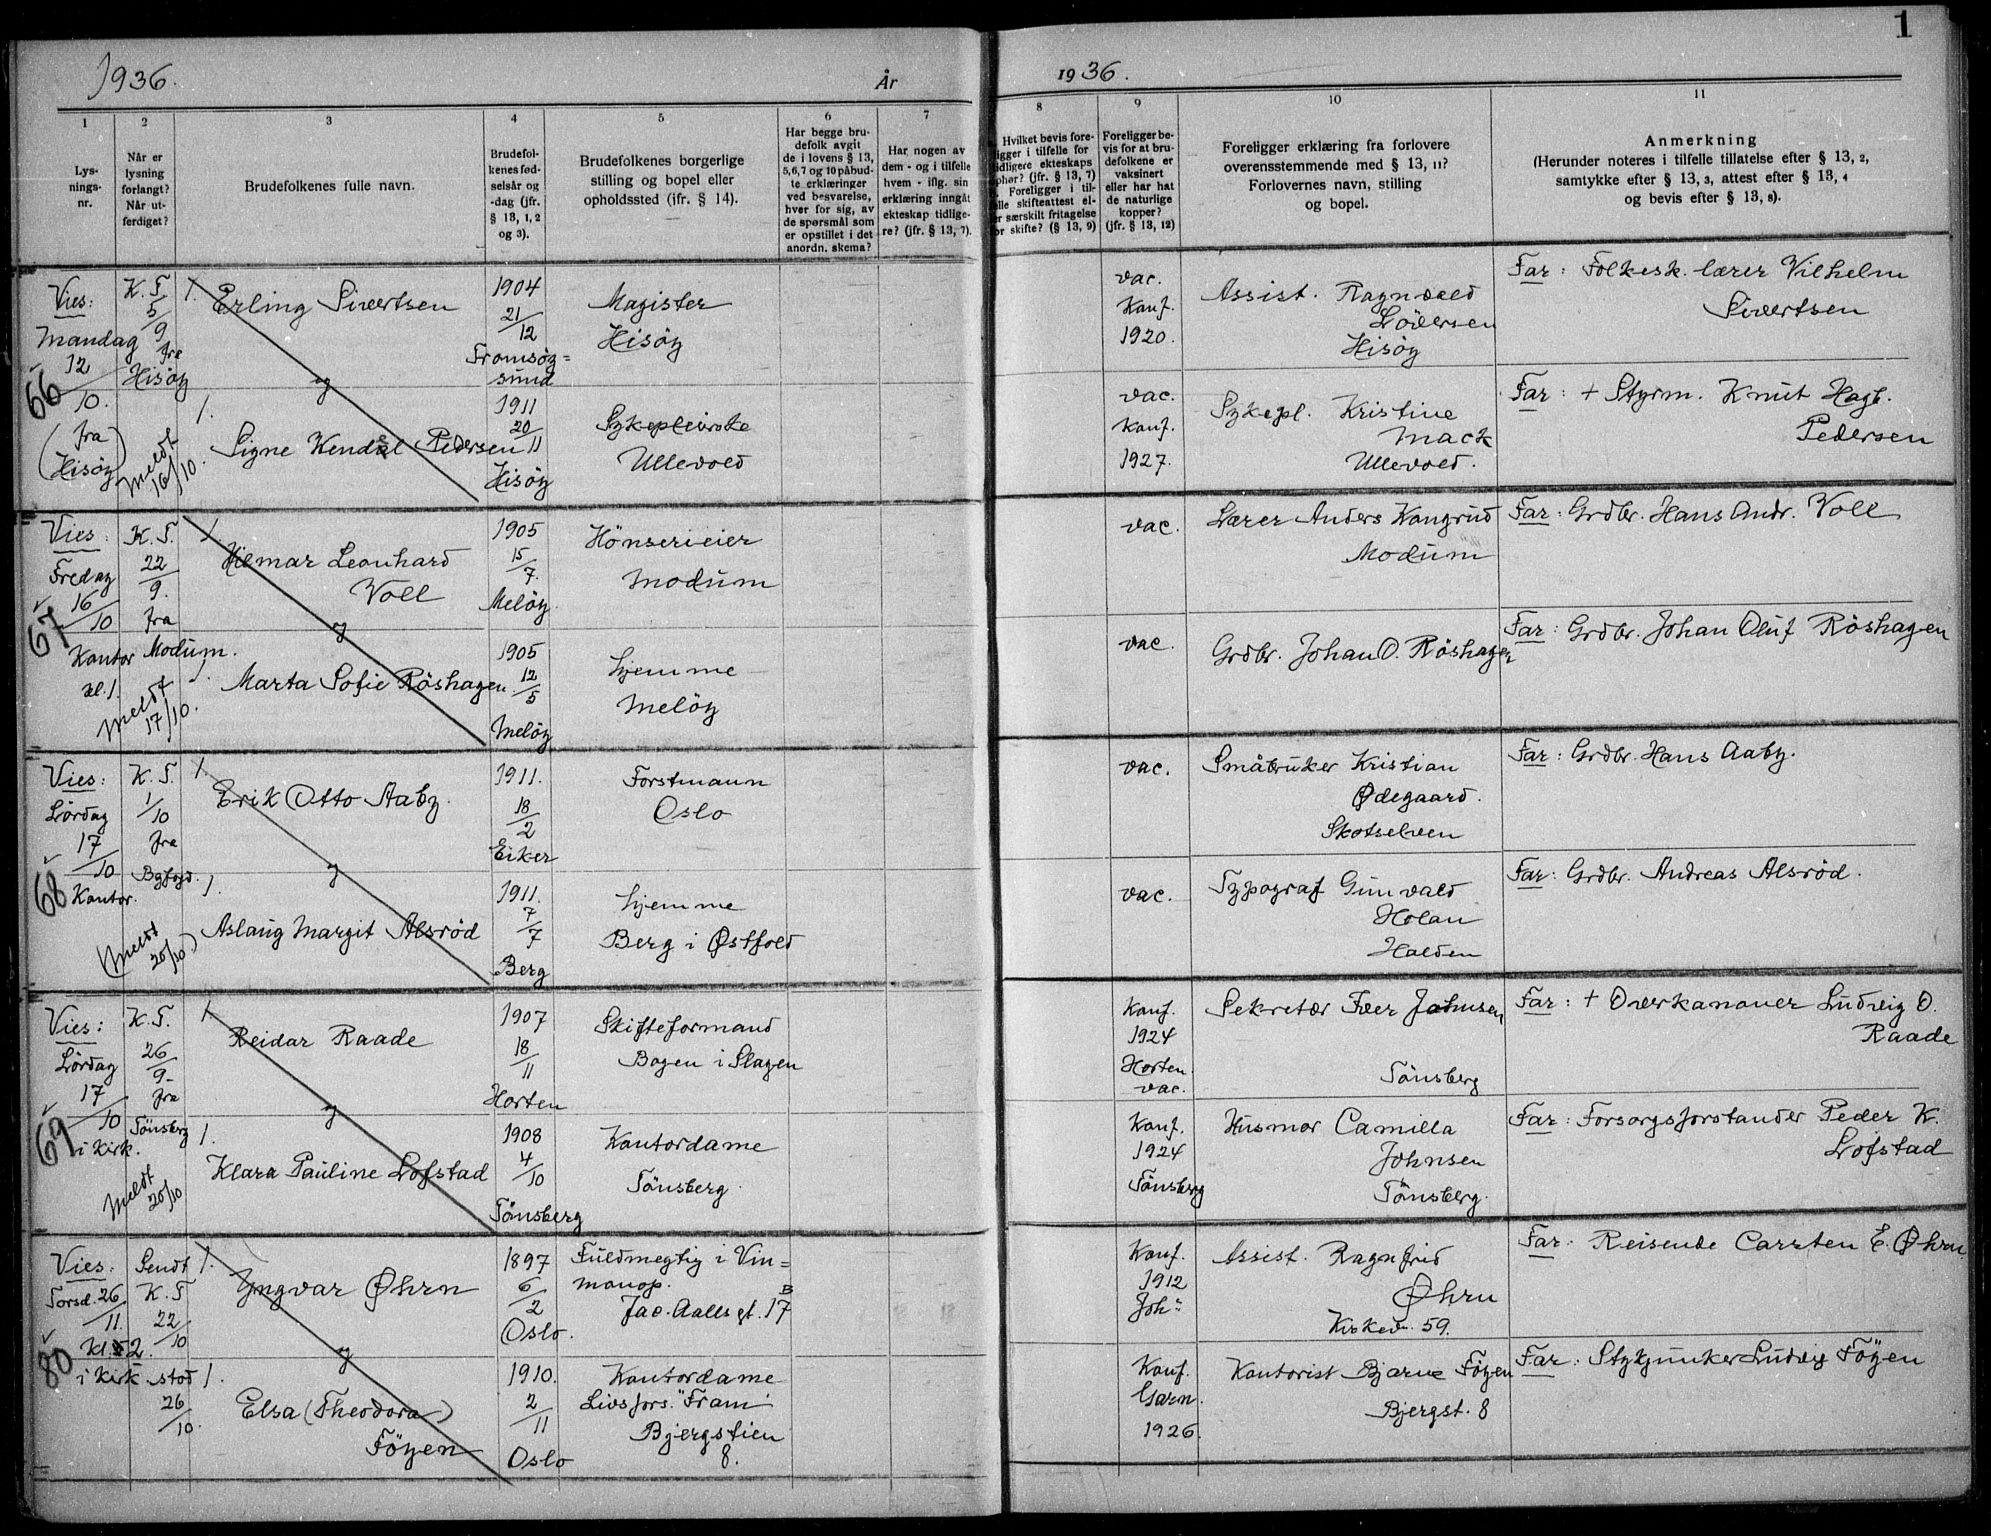 1
1936.
År
1936.
1
2
3
4
5
6
7
8
9
10
11
Lys-
nings-
nr.
Når er
lysning
forlangt?
Når ut-
ferdiget?
Brudefolkenes fulle navn.
Brudefol-
kenes fød-
selsår og
-dag (jfr.
§ 13, 1, 2
og 3).
Brudefolkenes borgerlige
stilling og bopel eller
opholdssted (jfr. § 14).
Har begge bru-
defolk avgit
de i lovens § 13,
5,6,7 og 10 påbud-
te erklæringer
ved besvarelse,
hver for sig, av
de spørsmål som
er opstillet i det
anordn. skema?
Har nogen av
dem - og i tilfelle
hvem - iflg. sin
erklæring inngåt
ekteskap tidlige-
re? (jfr. § 13, 7).
Hvilket bevis fore-
ligger i tilfelle for
tidligere ekteskaps
ophør? (jfr. § 13, 7)
Foreligger i til-
felle skifteattest el-
er særskilt fritagelse
for skifte? (§ 13, 9)
Foreligger be-
vis for at bru-
defolkene er
vaksinert
eller har hat
de naturlige
kopper?
(jfr. § 13, 12)
Foreligger erklæring fra forlovere
overensstemmende med § 13, 11?
Forlovernes navn, stilling
og bopel.
Anmerkning
(Herunder noteres i tilfelle tillatelse efter § 13, 2,
samtykke efter § 13, 3, attest efter § 13, 4
og bevis efter § 13, 8).
66
Vies:
mandag
12
10.
(fra
Hisöy)
K. T.
5
9
fra
Hisöy
meldt
16/10.
1. Erling Sivertsen
1904
21
12
Tromsöy=
sund
Magister
Hisöy
vac.
Konf.
1920.
Assist. Ragnvald
Lödersen
Hisöy
Far: Folkesk. lærer Vilhelm
Sivertsen
og
1. Signe Kendal Pedersen
1911
20
11
Hisöy
Sykepleierske
Ullevold
vac.
Konf.
1927.
Sykepl. Kristine
Mack
Ullevold.
Far: + Styrm. Knut Hagb.
Pedersen
67
Vies:
Fredag
16
10
Kontor
kl. 1.
K. T.
22
9.
fra
Modum.
meldt
17/10.
1 Hilmar Leonhard
Voll
1905
15
7.
Melöy.
Hönserieier
Modum
vac.
Lærer Anders Kongrud
Modum
Far: Grdbr. Hans Andr. Voll
og
1. Marta Sofie Röshagen
1905
12
5
Melöy
hjemme
Melöy
vac.
Grdbr. Johan O. Röshagen
Far: Grdbr. Johan Oluf Röshagen
68
Vies:
Lördag
17
10
Kontor.
K. T.
1
10
fra
Byfogd.
(meldt
20/10)
1. Erik Otto Aaby.
1911.
18
2
Eiker
Forstmann
Oslo
vac.
Småbruker Kristian
Ødegaard.
Skotselven
Far: Grdbr. Hans Aaby.
og
1. Aslaug Margit Alsrød
1911.
7
7
Berg
hjemme
Berg i Østfold
vac.
Typograf Gunvald
Holan
Halden
Far: Grdbr. Andreas Alsrød.
69
Vies:
Lördag
17
10
i Kirk.
K. T.
26
9.
fra
Tönsberg
meldt
20/10
1. Reidar Raade
1907
18
11
Horten
Skifteformand
Bogen i Slagen
Konf.
1924
Horten.
vac.
Sekretær Iver Johnsen
Tönsberg
Far: + Overkanoner Ludvig O.
Raade
og
1. Klara Pauline Lofstad
1908
4
10
Tönsberg
Kontordame
Tönsberg.
Konf.
1924
Tönsberg
Husmor Camilla
Johnsen
Tönsberg.
Far: Forsorgsforstander Peder K.
Lofstad
80
Vies:
Torsd. 26
11.
kl. 2.
i Kirk.
Sendt
K. T
22
10
stod
26
10.
1. Yngvar Øhrn
1897
6
2
Oslo.
Fuldmegtig i Vin=
monop.
Jac. Aalls gt. 17 B
Konf.
1912
Joh:
Assist. Ragnfrid
Øhrn
Kirkev. 59.
Far: Reisende Carsten E. Øhrn
og
1. Elsa (Theodora)
Föyen
1910.
2
11
Oslo
Kontordame
Livsfors. "Fram"
Bjergstien
8.
Konf.
Garn.
1926.
Kontorist Bjarne Föyen
Bjergst. 8
Far: Stykjunker Ludvig Föyen